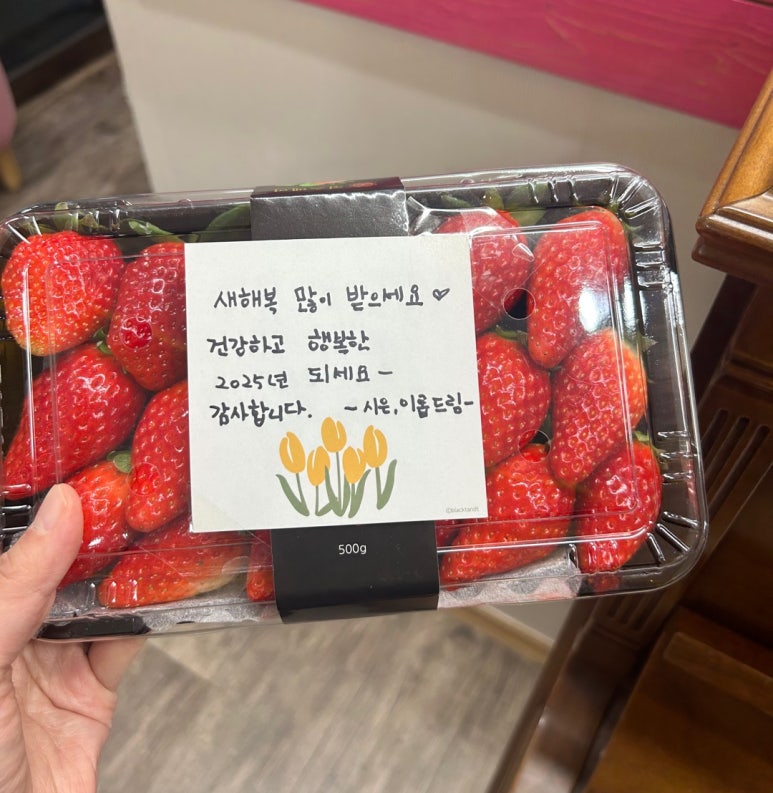 새해복 많이 받으세요 ♡
건강하고 행복한
2025년 되세요~
감사합니다. ~시은,이롬드림~
©blacktandt
500g